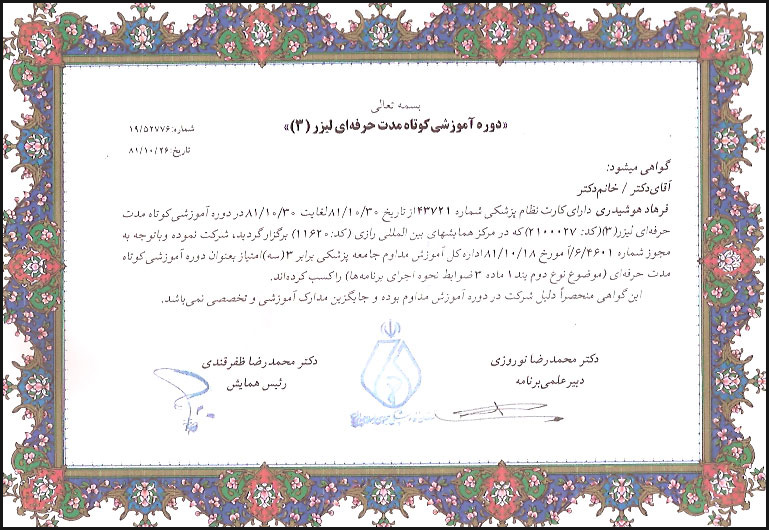 بسمه تعالی
«دوره آموزشی کوتاه مدت حرفه‌ای لیزر (۳)»
شماره: ۱۹/۵۲۷۷۶
تاریخ: ۸۱/۱۰/۲۶
گواهی میشود:
آقای دکتر / خانم دکتر
فرهاد هوشیدری دارای کارت نظام پزشکی شماره ۴۳۷۲۱ از تاریخ ۸۱/۱۰/۳۰ لغایت ۸۱/۱۰/۳۰ در دوره آموزشی کوتاه مدت
حرفه‌ای لیزر(۳)(کد: ۲۱۰۰۰۲۷) که در مرکز همایشهای بین المللی رازی (کد: ۱۱۶۲۰) برگزار گردید، شرکت نموده و باتوجه به
مجوز شماره ۶/۴۶۰۱/آ مورخ ۸۱/۱۰/۱۸ اداره کل آموزش مداوم جامعه پزشکی برابر ۳(سه) امتیاز بعنوان دوره آموزشی کوتاه
مدت حرفه‌ای (موضوع نوع دوم بند ۱ ماده ۳ ضوابط نحوه اجرای برنامه‌ها) را کسب کرده‌اند.
این گواهی منحصراً دلیل شرکت در دوره آموزش مداوم بوده و جایگزین مدارک آموزشی و تخصصی نمی‌باشد.
دکتر محمدرضا نوروزی
دبیر علمی برنامه
دکتر محمدرضا ظفرقندی
رئیس همایش